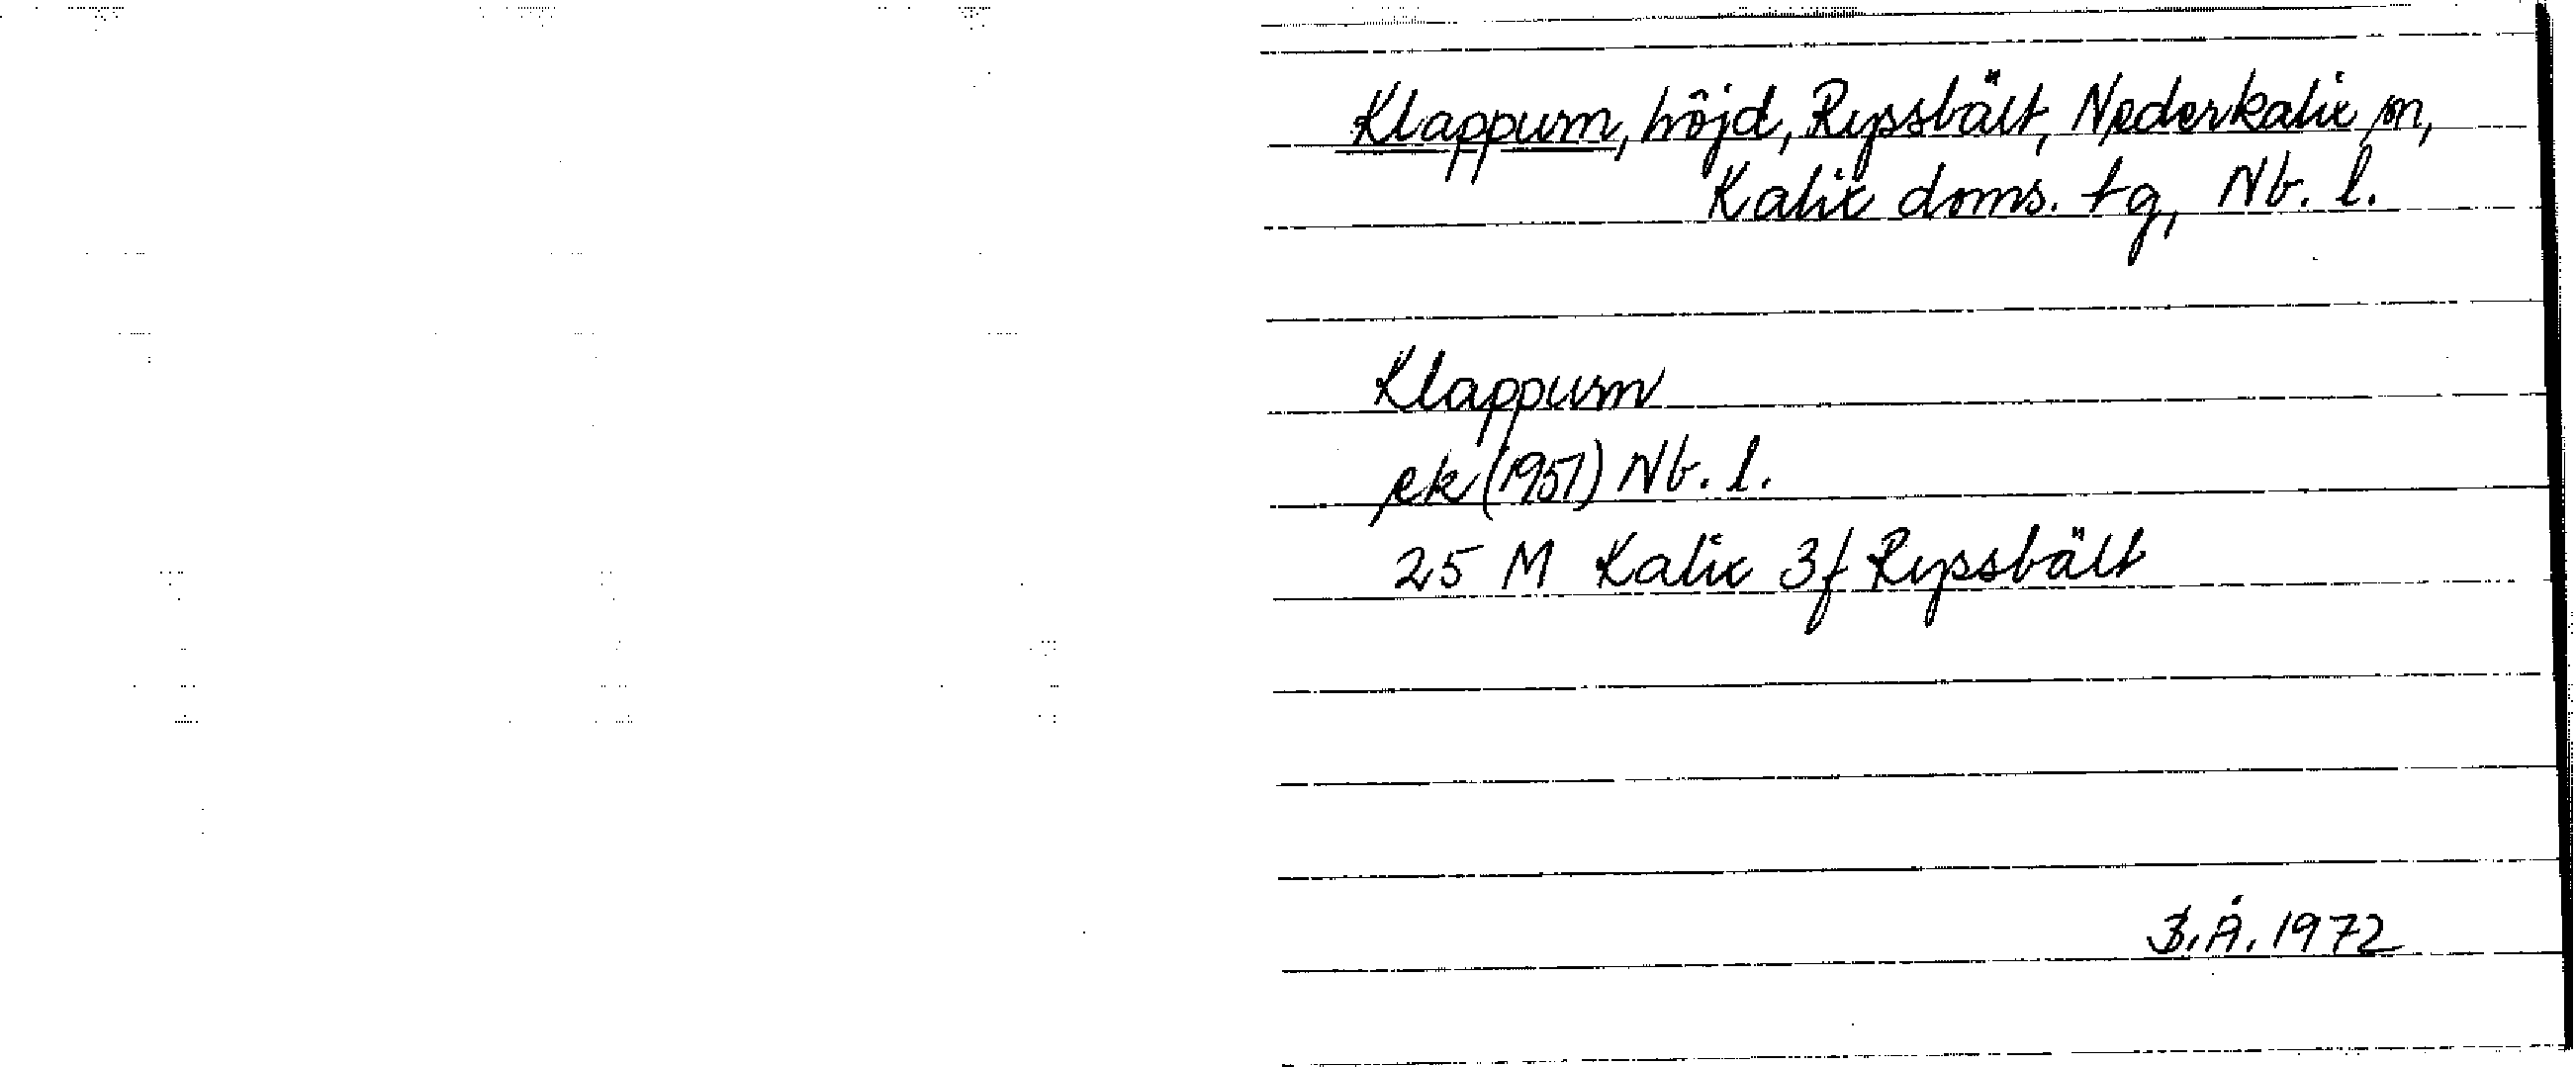 Klappurn, höjd, Ryssbält, Nederkalix sn,
Kalix doms. tg, Nb. l.
Klappurn
ek (1951) Nb. l.
25 M Kalix 3f Ryssbält
B.Å. 1972